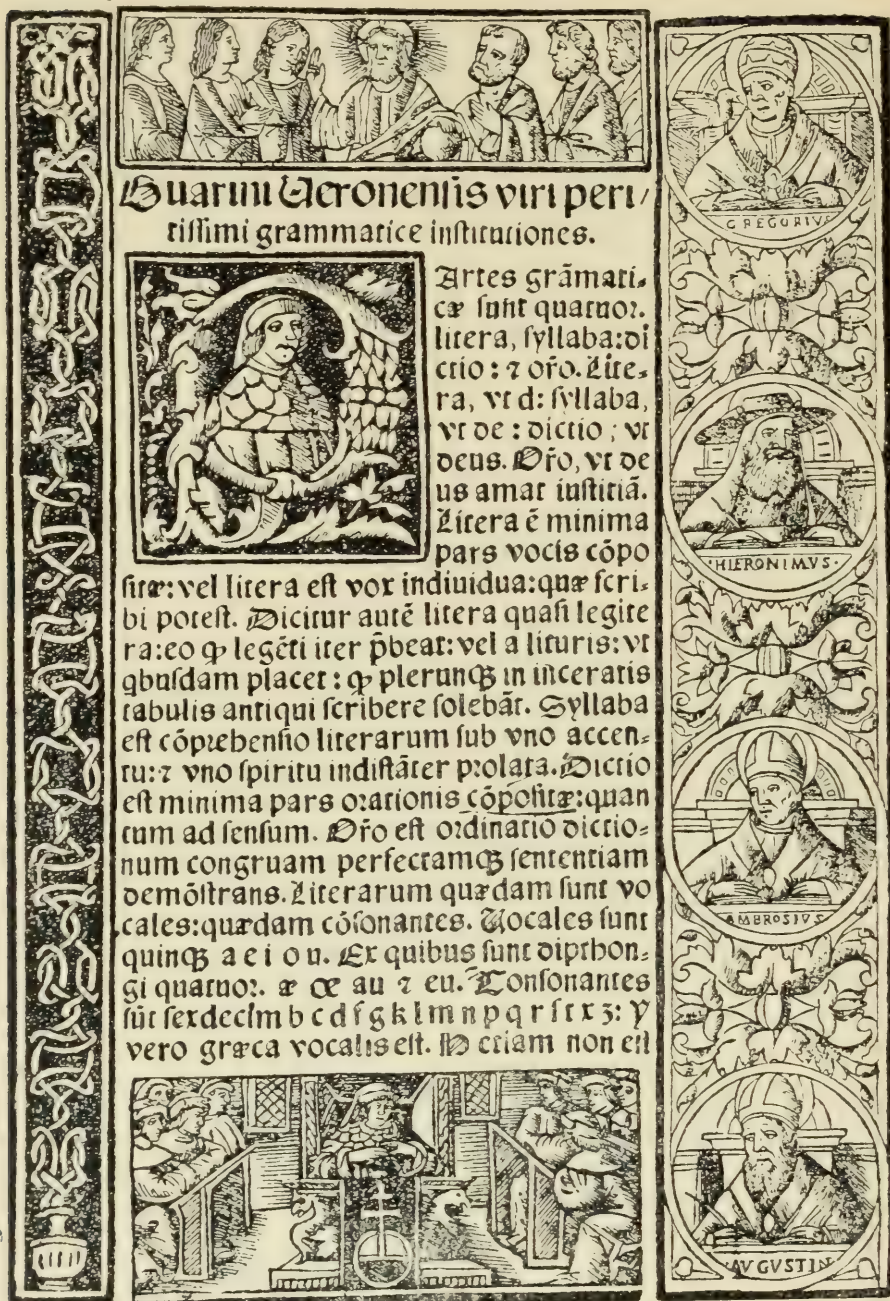 Guarini Ueronensis viri peri/
tissimi grammatice institutiones.
Artes grãmati-
cæ sunt quatuor.
litera, syllaba:di
ctio : ⁊ ořo. Lite-
ra, vt d: syllaba,
vt de : dictio ; vt
deus. Ořo, vt de
us amat iustitiã.
Litera ē minima
pars vocis cõpo
sitæ: vel litera est vox indiuidua:quæ scri-
bi potest. Dicitur autē litera quasi legite
ra:eo ꝙ legēti iter p̄beat: vel a lituris: vt
qbusdam placet : ꝙ plerunqꝫ in inceratis
tabulis antiqui scribere solebãt. Syllaba
est cõprehensio literarum sub vno accen-
tu:⁊ vno spiritu indistãter prolata. Dictio
est minima pars orationis cõpositæ:quan
tum ad sensum. Ořo est ordinatio dictio-
num congruam perfectamqꝫ sententiam
demõstrans. Literarum quædam sunt vo
cales:quædam cõsonantes. Uocales sunt
quinqꝫ a e i o u. Ex quibus sunt dipthon-
gi quatuor. æ œ au ⁊ eu. Consonantes
sũt sexdecim b c d f g k l m n p q r s t x ʒ: Y
vero græca vocalis est. H etiam non est
GREGORIVS
HIERONIMVS.
AMBROSIVS
AVGVSTIN